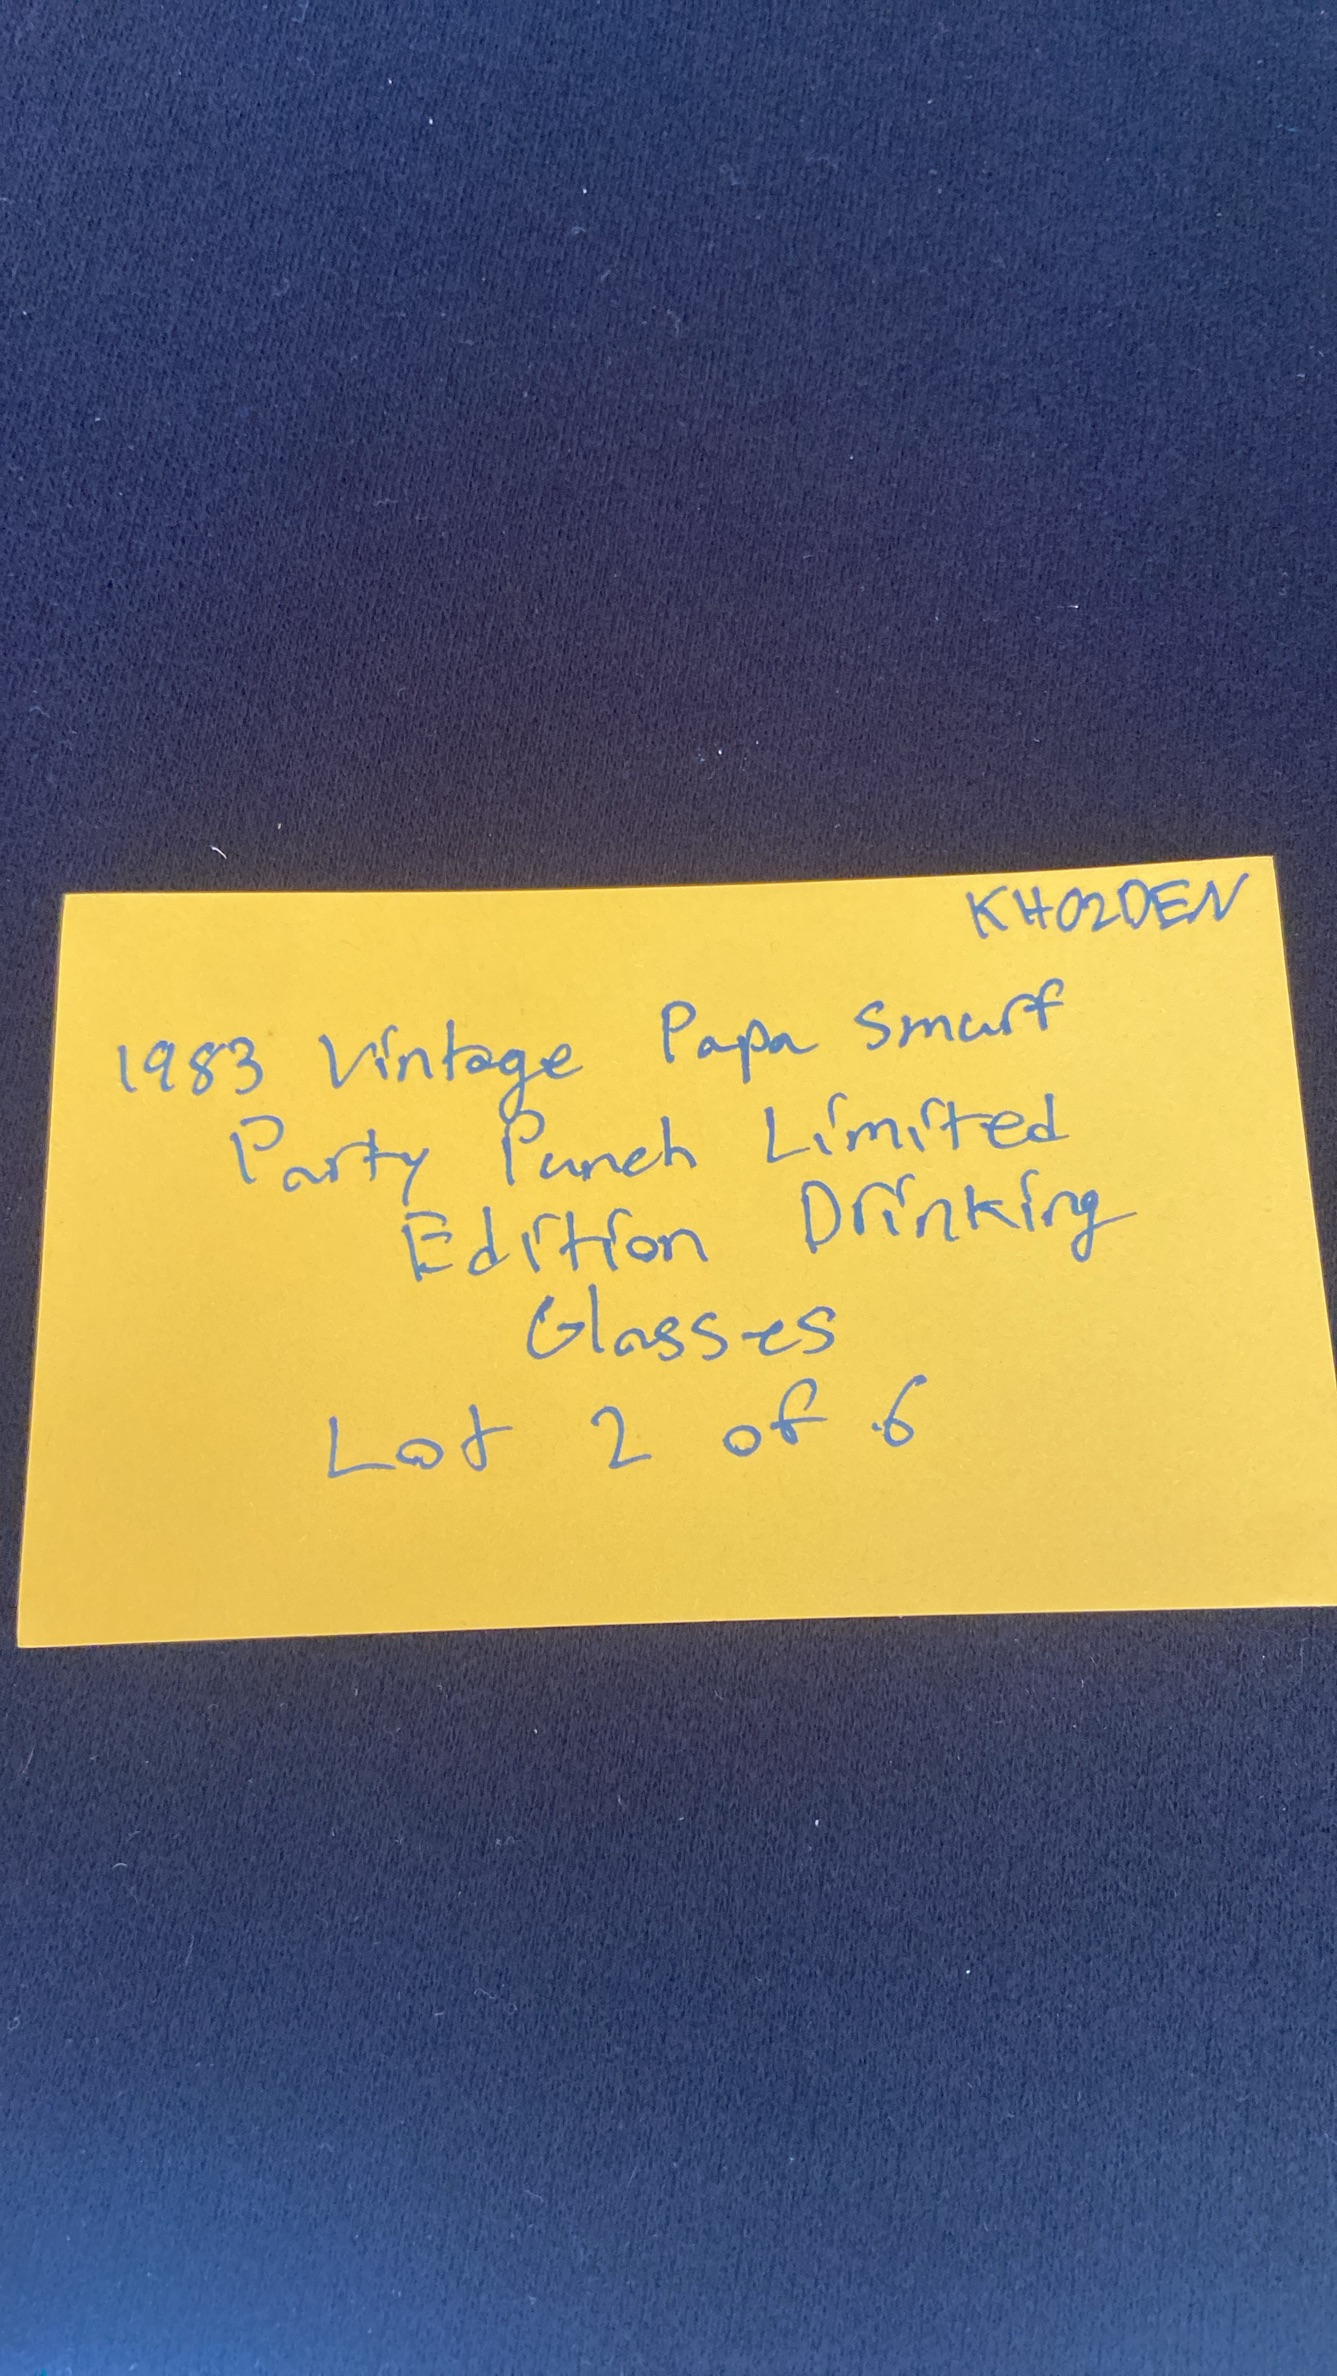 KH02DEN
1983 Vintage Papa Smurf
Party Punch Limited
Edition Drinking
Glasses
Lot 2 of 6